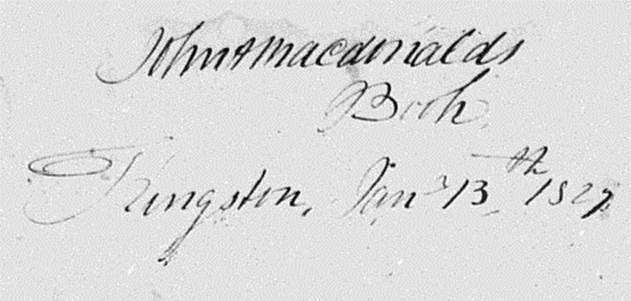 John A Macdonalds
Book
Kingston, Jany 13th 1827